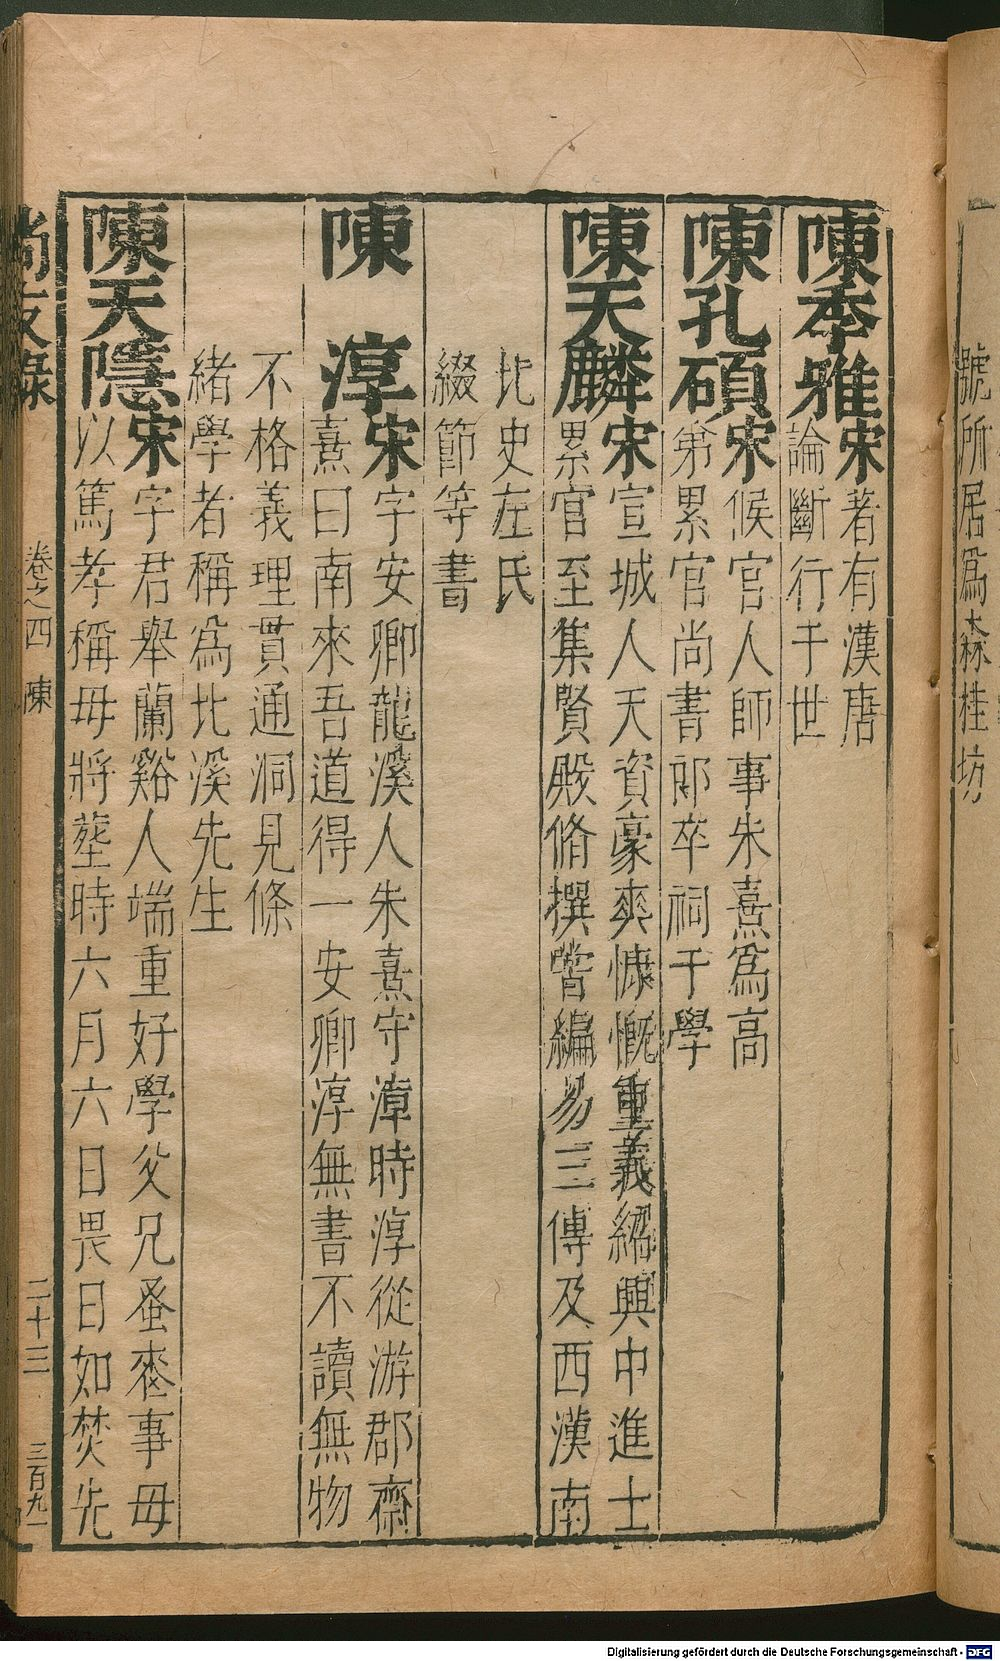 號所居爲森桂坊
陳季雅宋著有漢唐
論斷行于世
陳孔碩宋候官人師事朱熹爲高
第累官尚書郎卒祠于學
陳天麟宋宣城人天資豪爽慷慨重義紹興中進士
累官至集賢殿脩撰嘗編易三傳及西漢南
北史左氏
綴節等書
陳淳宋字安卿龍溪人朱熹守漳時淳從游郡齋
熹曰南來吾道得一安卿淳無書不讀無物
不格義理貫通洞見條
緒學者稱爲北溪先生
陳天隱宋字君舉蘭谿人端重好學父兄蚤喪事母
以篤孝稱母將塟時六月六日畏日如焚先
尚友錄 卷之四 陳 二十三 三百九一
Digitalisierung gefördert durch die Deutsche Forschungsgemeinschaft - DFG